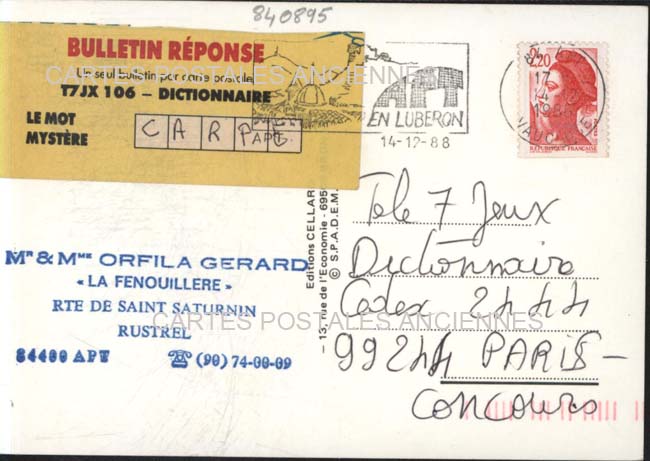 840895
BULLETIN RÉPONSE
Un seul bulletin par carte postale
T7JX 106 – DICTIONNAIRE
LE MOT
MYSTÈRE
C A R P E
APT
EN LUBERON
14-12-88
2,20
17
14
1988
VAUCLUSE
REPUBLIQUE FRANÇAISE
CARTES POSTALES ANCIENNES
Editions CELLARD
– 13, rue de l'Economie - 6950
© S.P.A.D.E.M.
Mr & Mme ORFILA GERARD
« LA FENOUILLERE »
RTE DE SAINT SATURNIN
RUSTREL
84400 APT ☎ (90) 74-00-09
CARTES POSTALES ANCIENNES
Tele 7 Jeux
Dictionnaire
Cedex 2444
99244 PARIS –
Concours